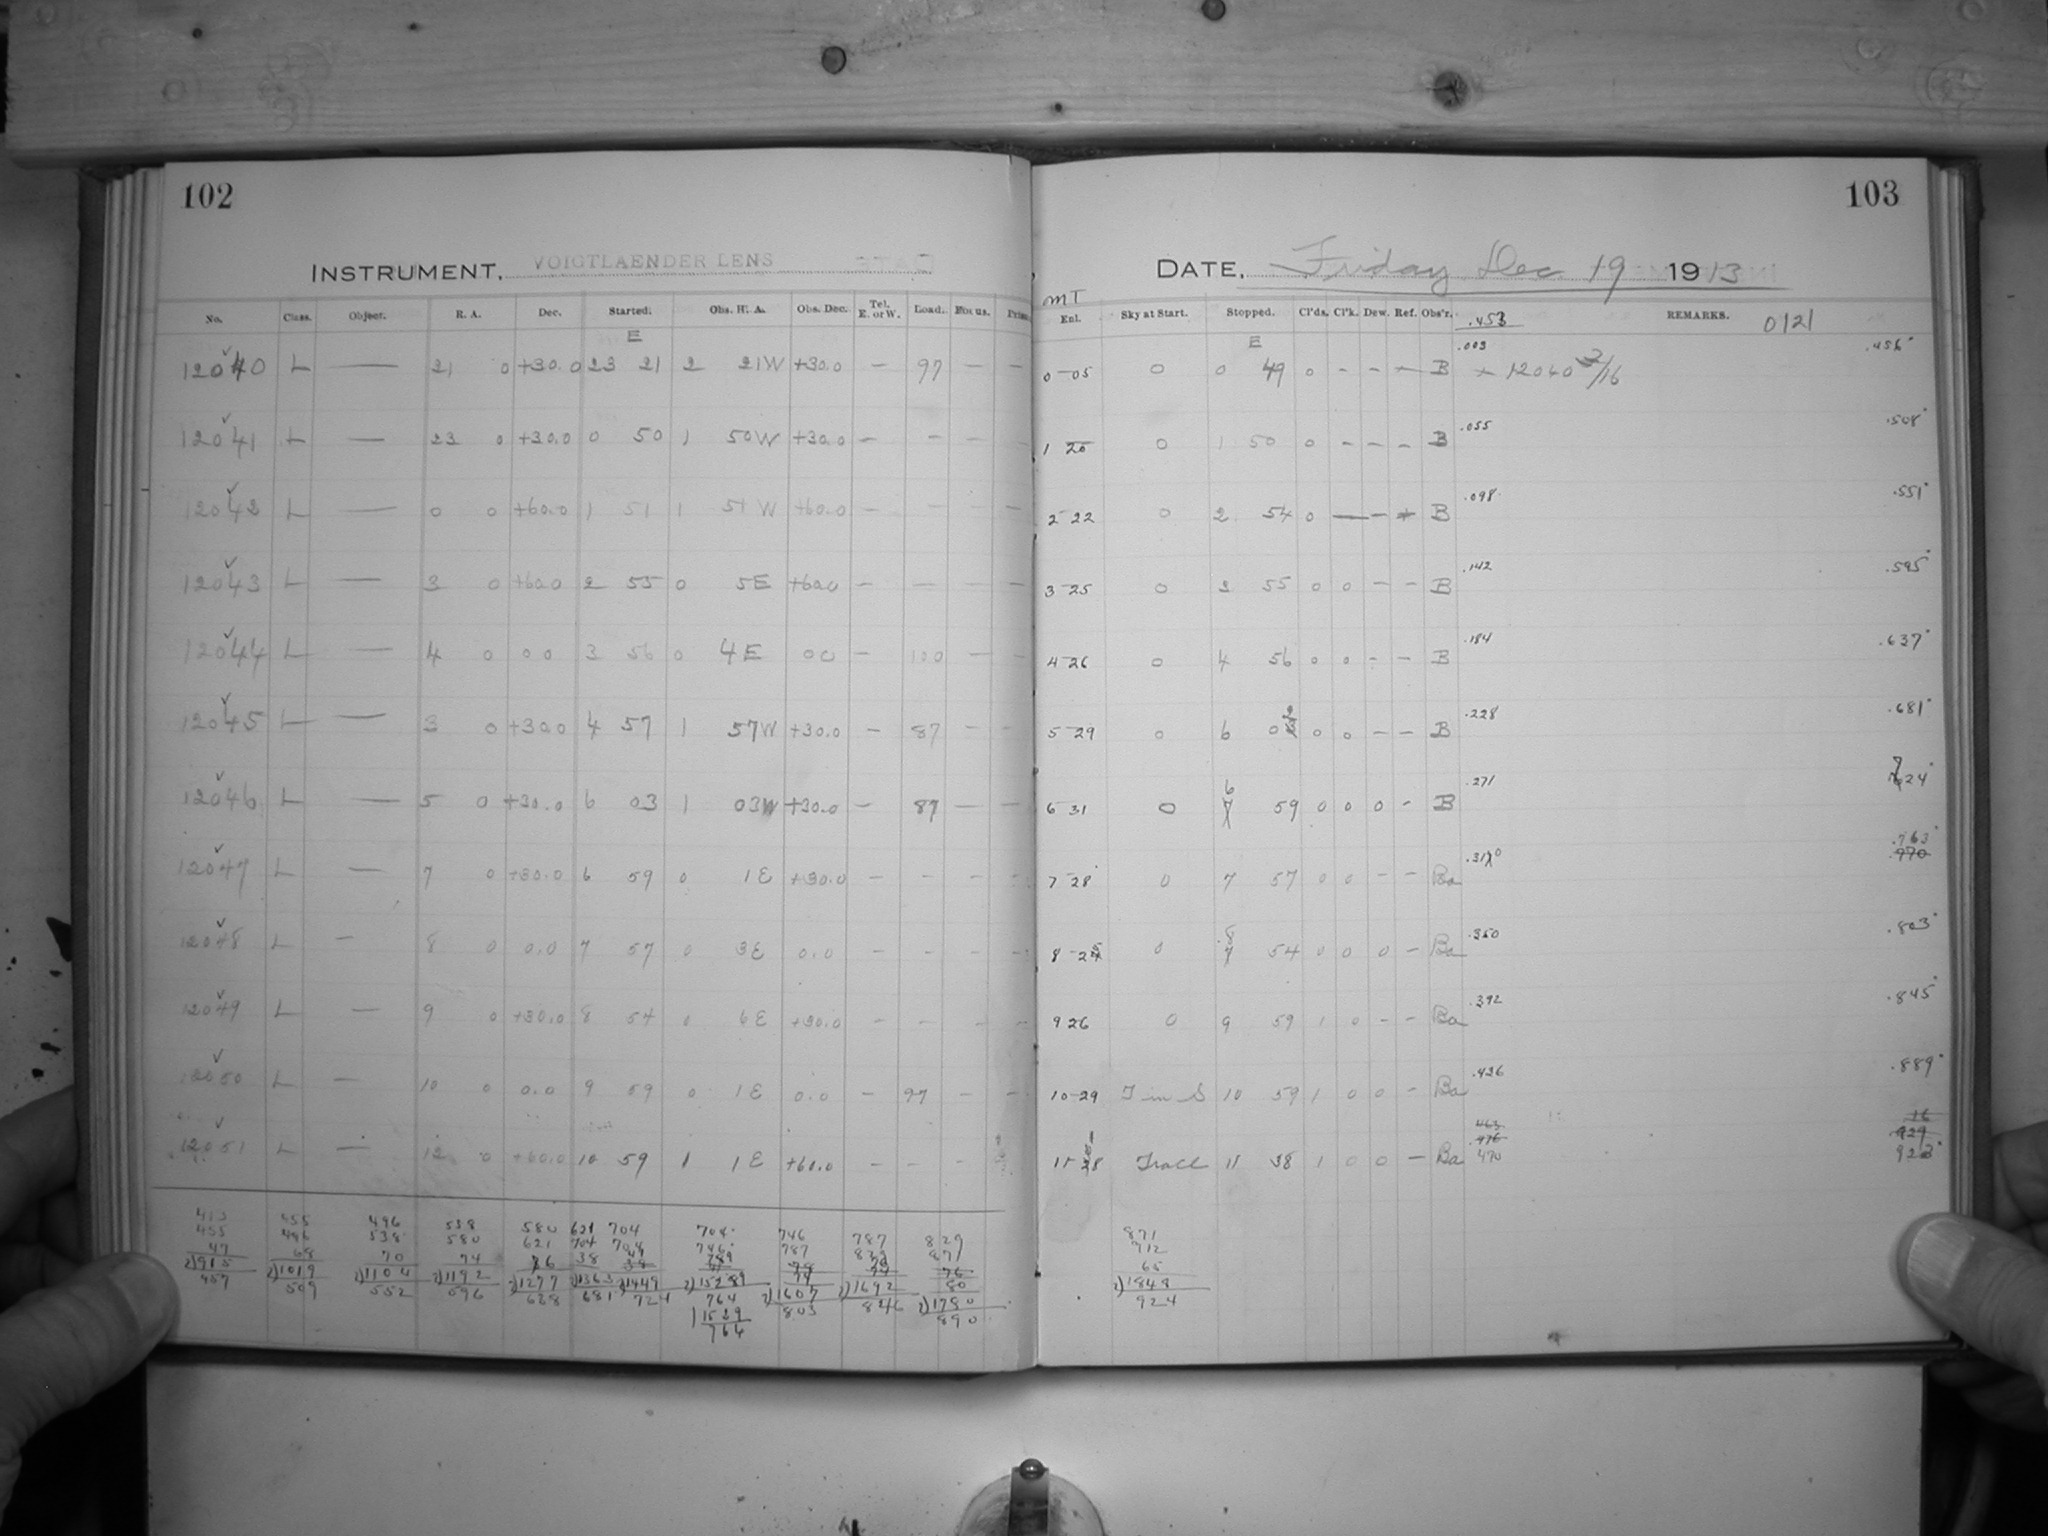 102
INSTRUMENT, VOIGTLAENDER LENS
No. Class. Object. R. A. Dec. Started. Obs. H. A. Obs. Dec. Tel. E. or W. Load. Focus.
E
12040 L — 21 0 +30.0 23 21 2 21W +30.0 — 97 — —
12041 L — 23 0 +30.0 0 50 1 50W +30.0 — — — —
12042 L — 0 0 +60.0 1 51 1 51W +60.0 — — — —
12043 L — 3 0 +60.0 2 55 0 5E +60.0 — — — —
12044 L — 4 0 0 0 3 56 0 4E 0 0 — 100 — —
12045 L — 3 0 +30.0 4 57 1 57W +30.0 — 87 — —
12046 L — 5 0 +30.0 6 03 1 03W +30.0 — 87 — —
12047 L — 7 0 +30.0 6 59 0 1E +30.0 — — — —
12048 L — 8 0 0.0 7 57 0 3E 0.0 — — — —
12049 L — 9 0 +30.0 8 54 0 6E +30.0 — — — —
12050 L — 10 0 0.0 9 59 0 1E 0.0 — 97 — —
12051 L — 12 0 +60.0 10 59 1 1E +60.0 — — —
413 455 496 538 580 621 704 704 746 787 829
455 496 538 580 621 704 746 787 829 871
47 68 70 74 76 38
2)915 2)1019 2)1104 2)1192 2)1277 2)1363 2)1449 2)1607 2)1692 2)1780
457 509 552 596 638 681 724 764 803 846 890
1529
764
103
DATE, Friday Dec. 19 1913
MT
Enl. Sky at Start. Stopped. Cl'ds. Cl'k. Dew. Ref. Obs'r. .453 REMARKS. 0121
E
0-05 0 0 49 0 - - - B .003 12040 3/16 .456
1 20 0 1 50 0 - - - B .055 .508
2-22 0 2 54 0 — - B .098 .551
3-25 0 3 55 0 0 - - B .142 .595
4-26 0 4 56 0 0 - - B .184 .637
5-29 0 6 02 0 0 - - B .228 .681
6-31 0 6 59 0 0 0 - B .271 724
7-28 0 7 57 0 0 - - Ba .310 .763
.770
8-25 0 8 54 0 0 0 - Ba .350 .803
9 26 0 9 59 1 0 - - Ba .392 .845
10-29 T in S 10 59 1 0 0 - Ba .436 .889
11-28 Trace 11 38 1 0 0 - Ba 470 923
871
912
65
2)1848
924